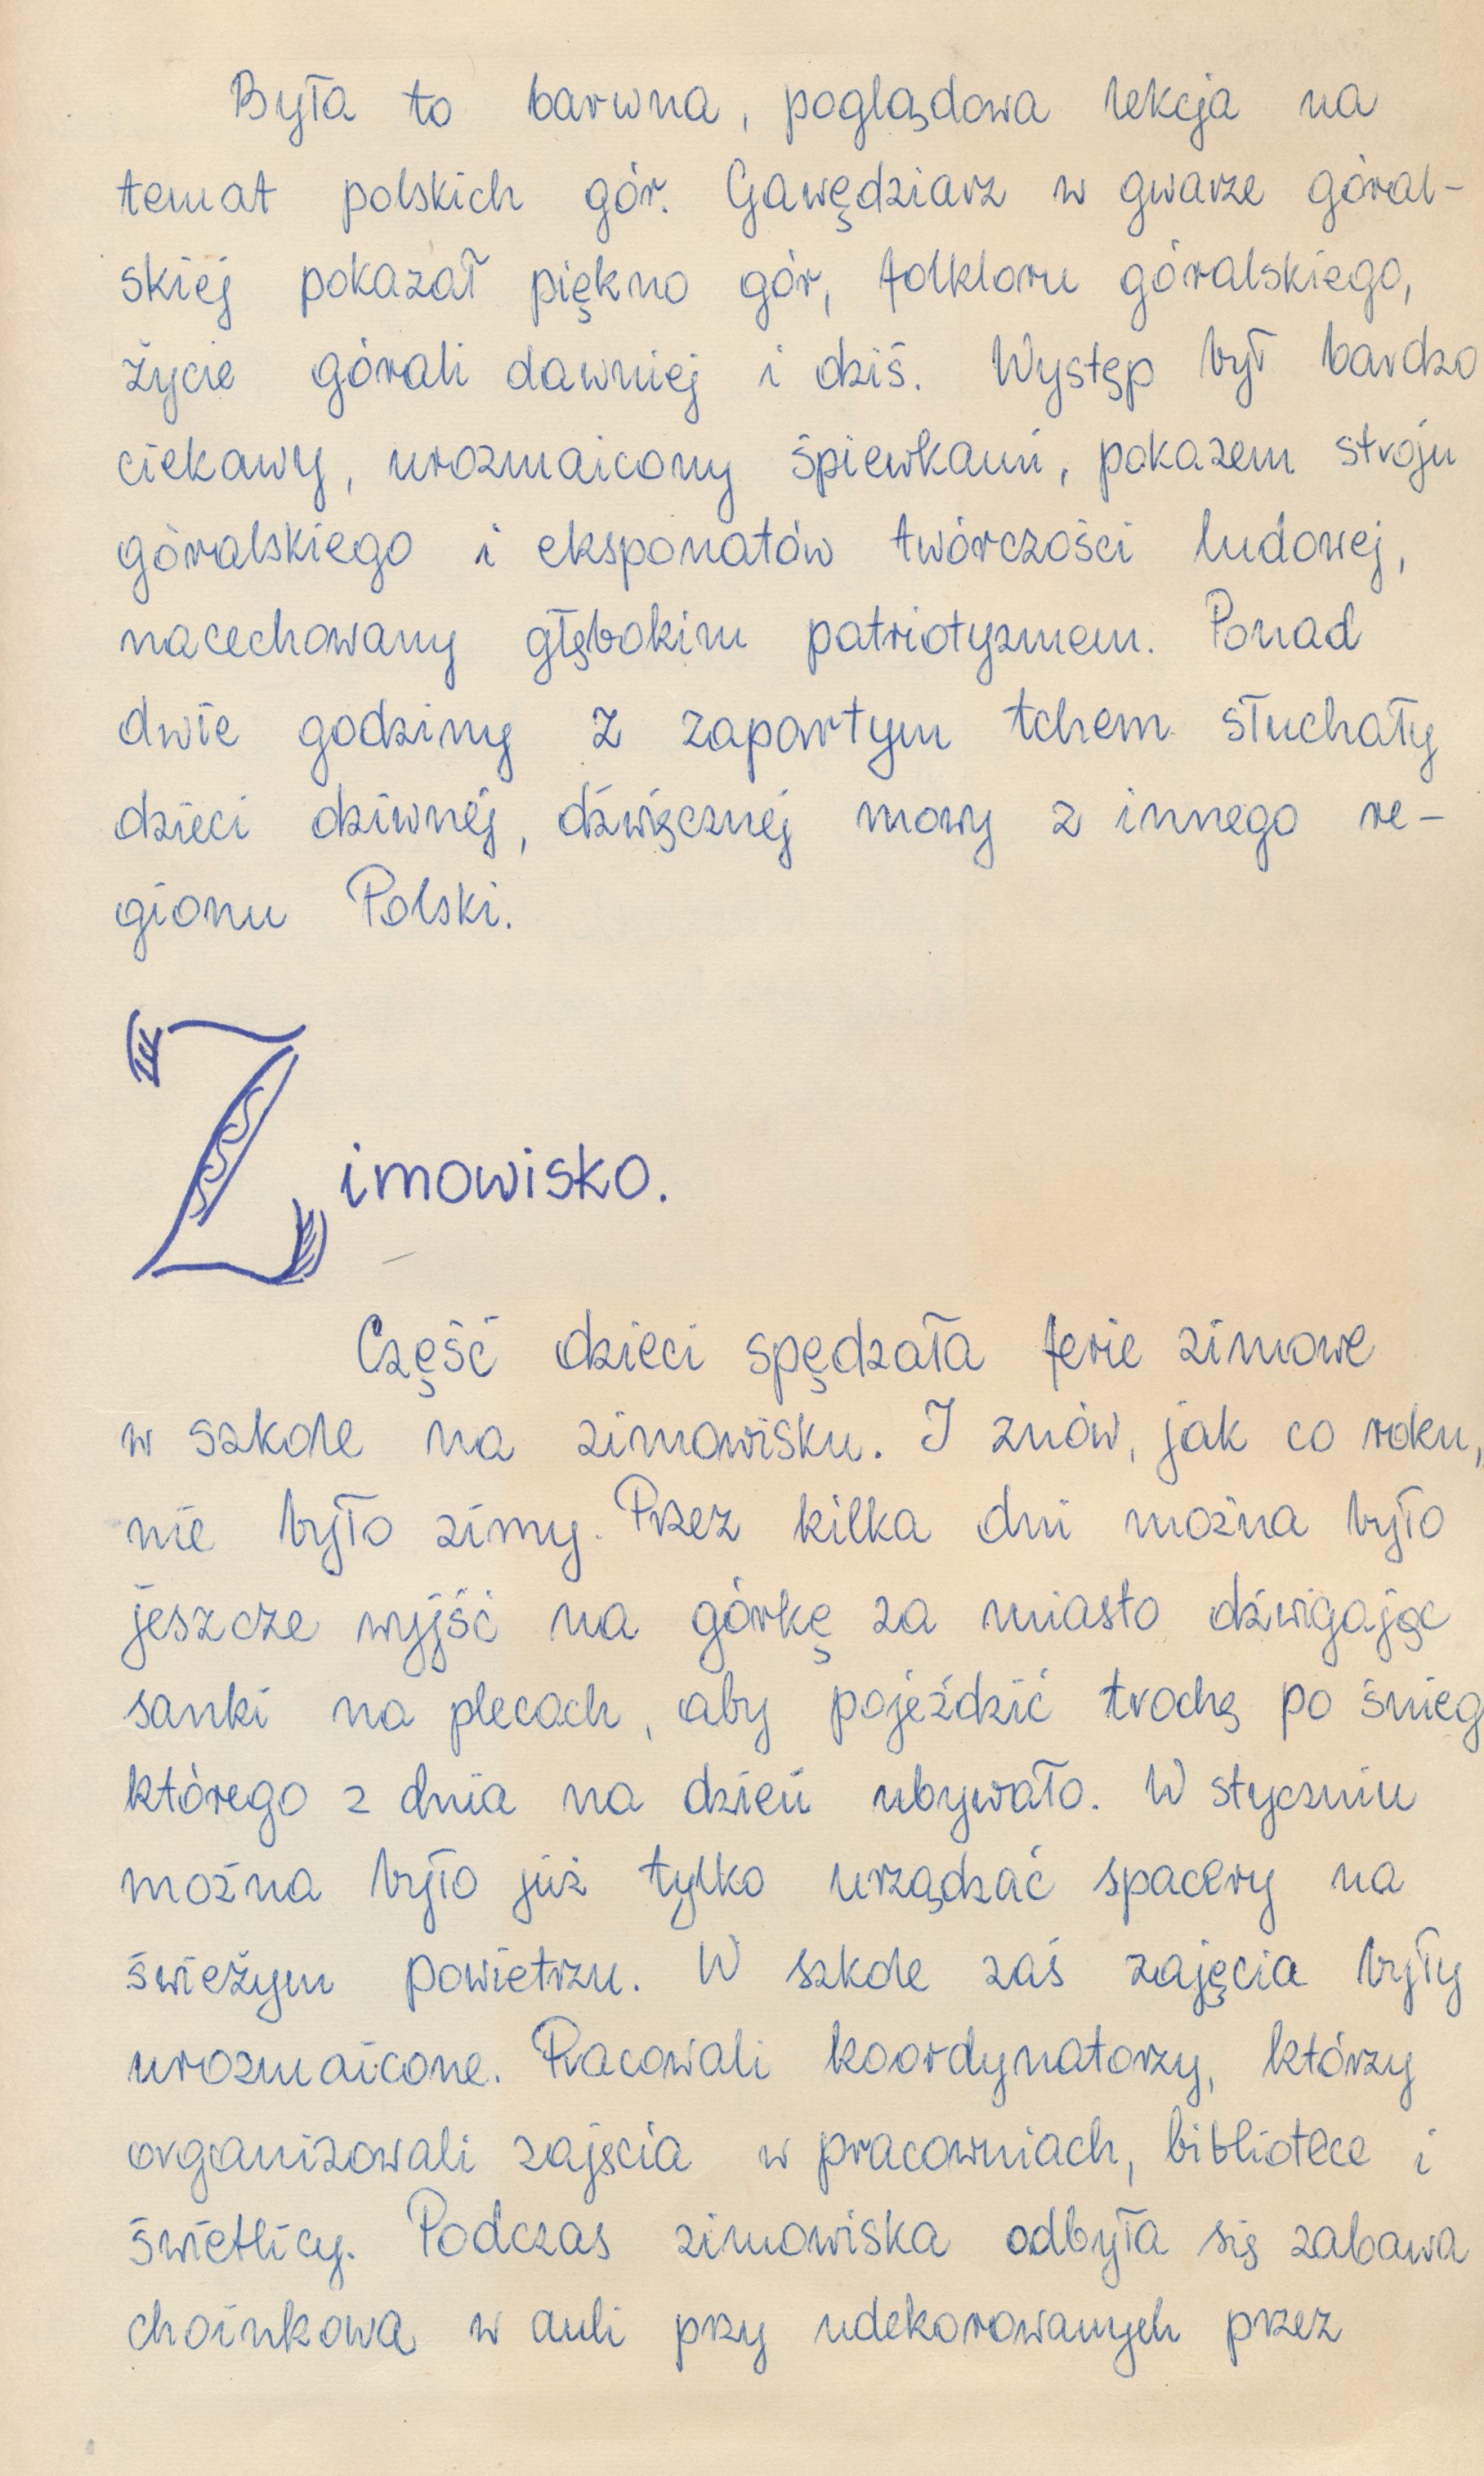 Była to barwna, poglądowa lekcja na
temat polskich gór. Gawędziarz w gwarze góral-
skiej pokazał piękno gór, folkloru góralskiego,
życie górali dawniej i dziś. Występ był bardzo
ciekawy, urozmaicony śpiewkami, pokazem stroju
góralskiego i eksponatów twórczości ludowej,
nacechowany głębokim patriotyzmem. Ponad
dwie godziny z zapartym tchem słuchały
dzieci dziwnej, dźwięcznej mowy z innego re-
gionu Polski.
Zimowisko.
Część dzieci spędzała ferie zimowe
w szkole na zimowisku. I znów, jak co roku,
nie było zimy. Przez kilka dni można było
jeszcze wyjść na górkę za miasto dźwigając
sanki na plecach, aby pojeździć trochę po śnieg
którego z dnia na dzień ubywało. W styczniu
można było już tylko urządzać spacery na
świeżym powietrzu. W szkole zaś zajęcia były
urozmaicone. Pracowali koordynatorzy, którzy
organizowali zajęcia w pracowniach, bibliotece i
świetlicy. Podczas zimowiska odbyła się zabawa
choinkowa w auli przy udekorowanych przez